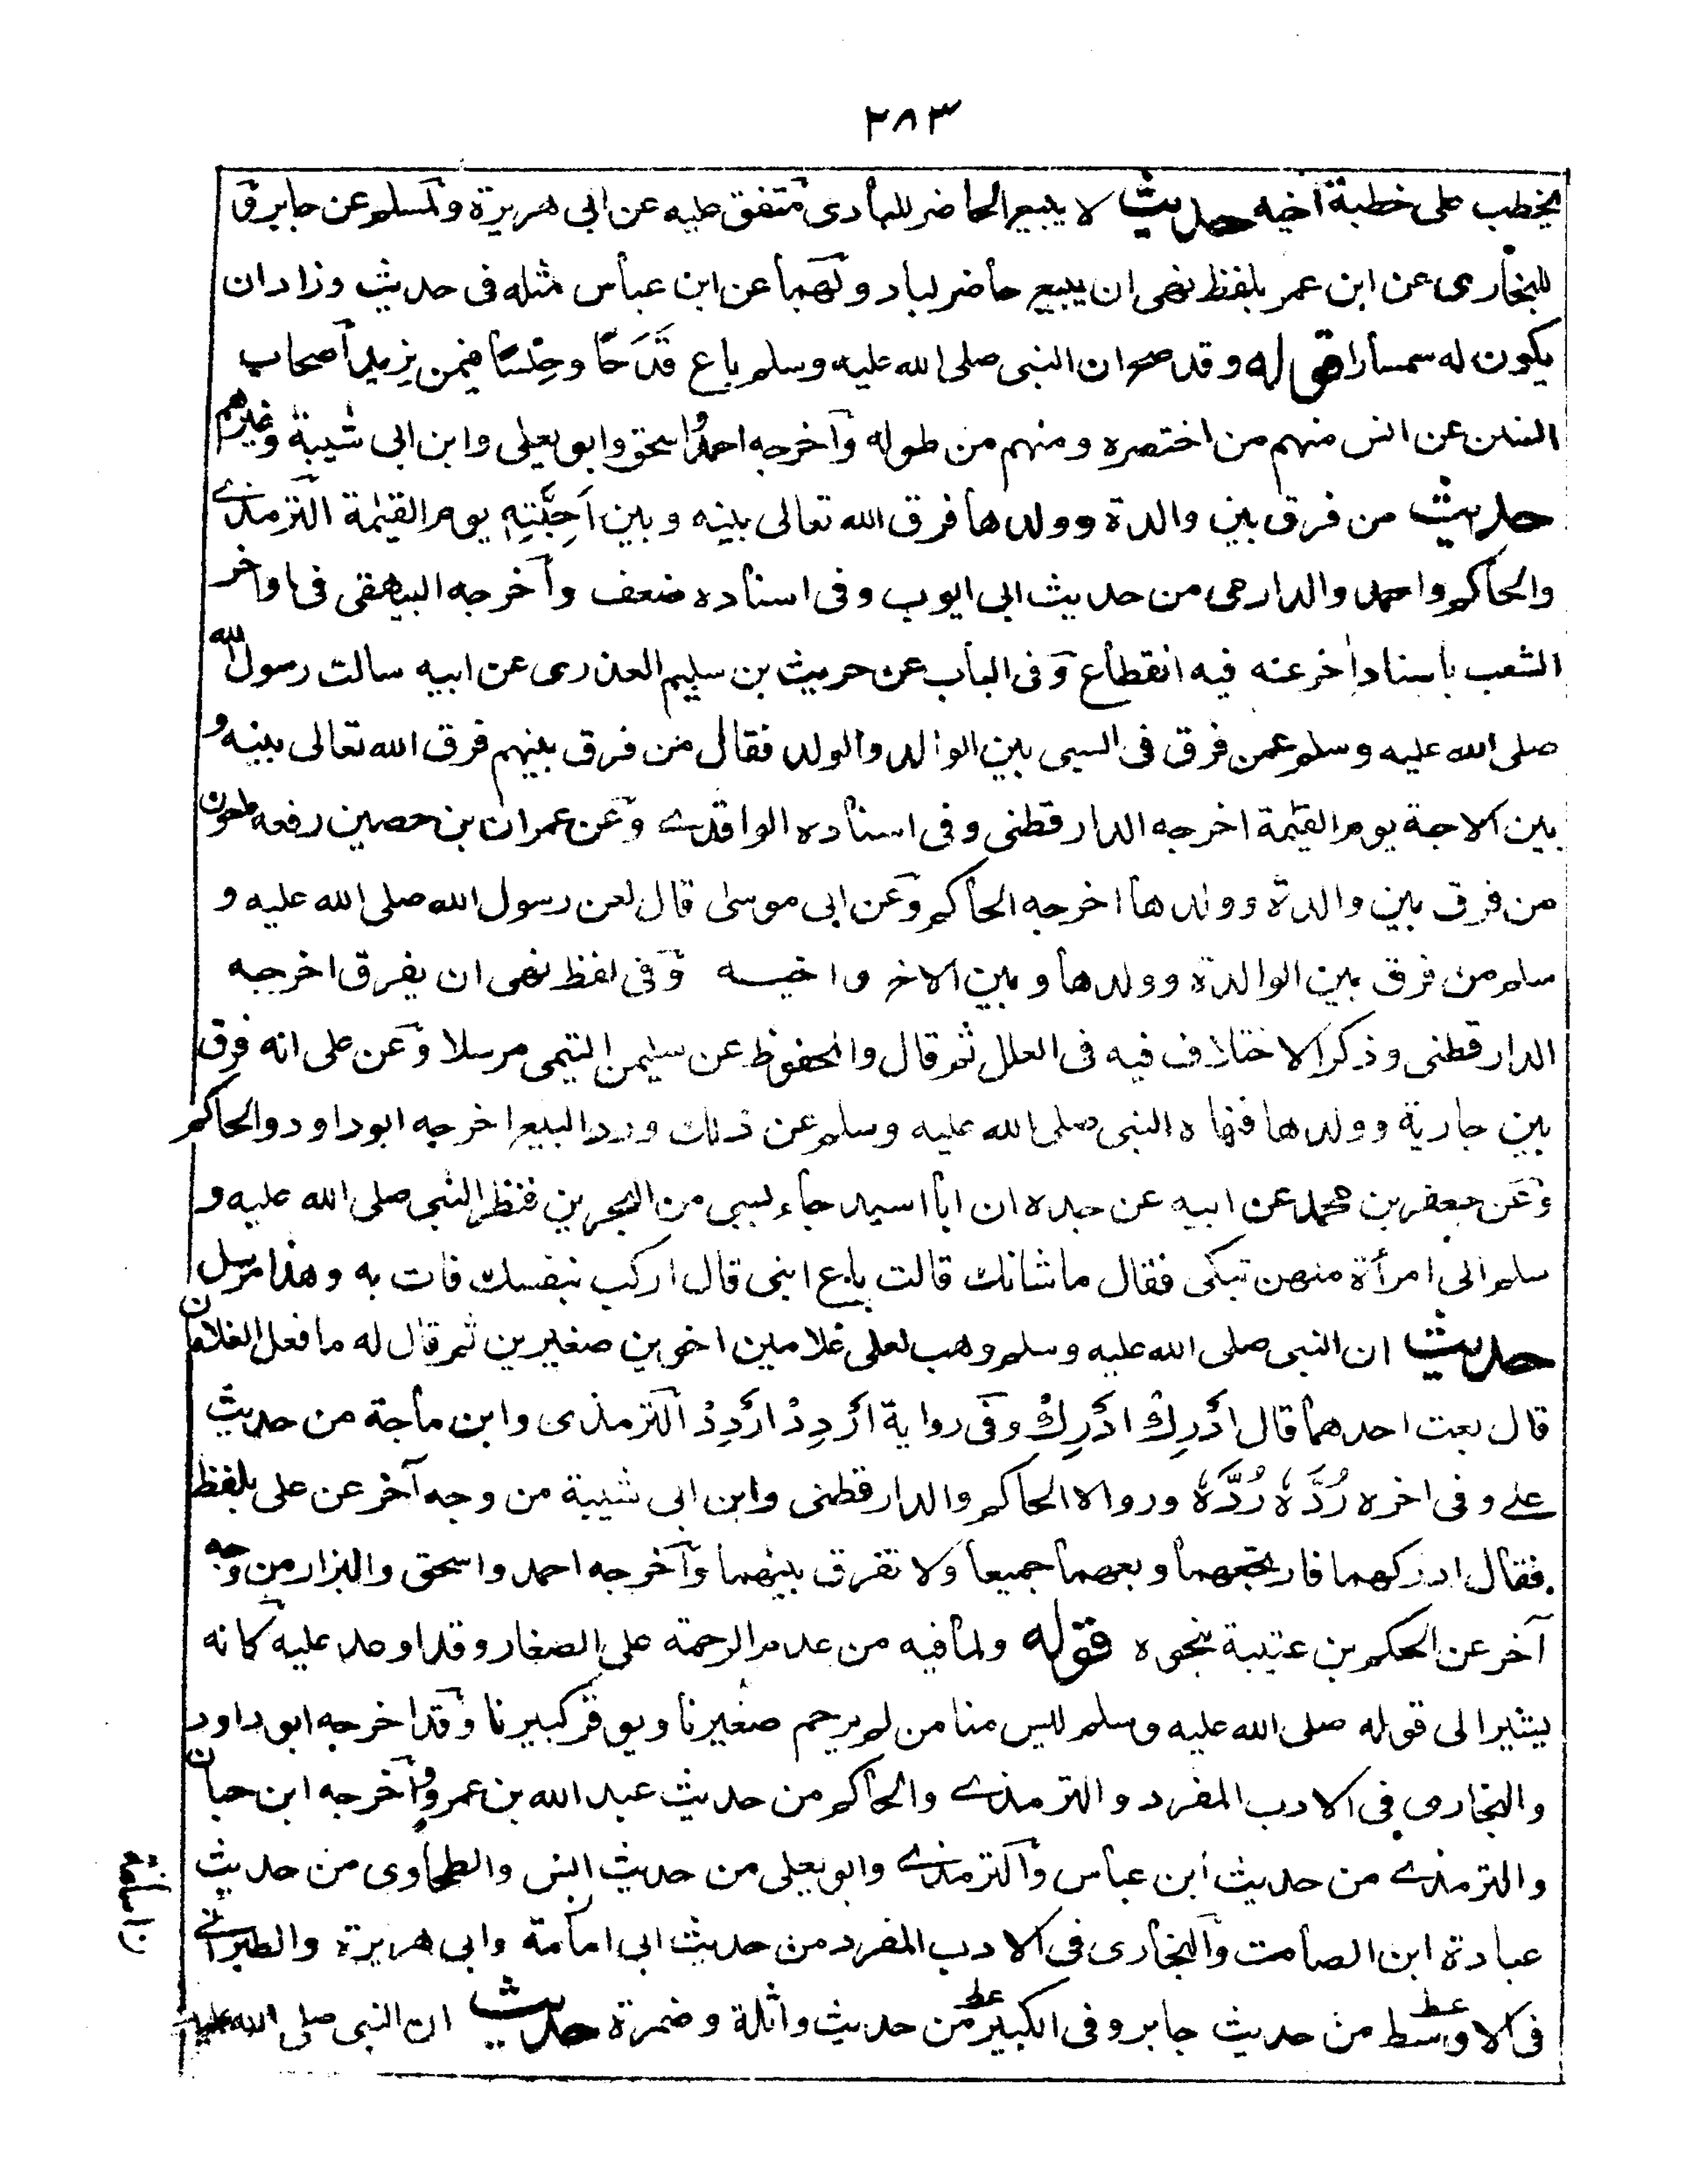 ٢٨٣
يخطب على خطبة اخيه حديث لا يبيع الحاضر للبادى متفق عليه عن ابى هريرة ولمسلم عن جابر و
للبخارى عن ابن عمر بلفظ نهى ان يبيع حاضر لباد ولهما عن ابن عباس مثله فى حديث وزاد ان
يكون له سمسارا قوله وقد صح ان النبى صلى الله عليه وسلم باع قَدَحًا وحِلْسًا فيمن يزيد اصحاب
السنن عن انس منهم من اختصره ومنهم من طوله واخرجه احمد واسحق وابو يعلى وابن ابى شيبة وغيرهم
حديث من فرق بين والدة وولدها فرق الله تعالى بينه وبين اَحِبَّتِهِ يوم القيمة الترمذى
والحاكم واحمد والدارمى من حديث ابى ايوب وفى اسناده ضعف واخرجه البيهقى فى اواخر
الشعب باسناد اخر عنه فيه انقطاع وفى الباب عن حريث بن سليم العذرى عن ابيه سالت رسول الله
صلى الله عليه وسلم عمن فرق فى السبى بين الوالد والولد فقال من فرق بينهم فرق الله تعالى بينه و
بين الاحبة يوم القيمة اخرجه الدارقطنى وفى اسناده الواقدى وعن عمران بن حصين رفعه ملعون
من فرق بين والدة وولدها اخرجه الحاكم وعن ابى موسى قال لعن رسول الله صلى الله عليه و
سلم من فرق بين الوالدة وولدها وبين الاخ واخيه وفى لفظ نهى ان يفرق اخرجه
الدارقطنى وذكر الاختلاف فيه فى العلل ثم قال والمحفوظ عن سليمن التيمى مرسلا وعن على انه فرق
بين جارية وولدها فنهاه النبى صلى الله عليه وسلم عن ذلك ورد البيع اخرجه ابو داود والحاكم
وعن جعفر بن محمد عن ابيه عن جده ان ابا اسيد جاء بسبى من البحرين فنظر النبى صلى الله عليه و
سلم الى امرأة منهن تبكى فقال ما شانك قالت باع ابنى قال اركب بنفسك فات به وهذا مرسل
حديث ان النبى صلى الله عليه وسلم وهب لعلى غلامين اخوين صغيرين ثم قال له ما فعل الغلامان
قال بعت احدهما قال اَدْرِكْ اَدْرِكْ وفى رواية ارْدِدْ ارْدِدْ الترمذى وابن ماجة من حديث
على وفى اخره رُدَّهُ رُدَّهُ ورواه الحاكم والدارقطنى وابن ابى شيبة من وجه آخر عن على بلفظ
فقال ادركهما فارتجعهما وبعهما جميعا ولا تفرق بينهما واخرجه احمد واسحق والبزار من وجه
آخر عن الحكم بن عتيبة بنحوه قوله ولما فيه من عدم الرحمة على الصغار وقد اوعد عليه كانه
يشير الى قوله صلى الله عليه وسلم ليس منا من لم يرحم صغيرنا ويوقر كبيرنا وقد اخرجه ابو داود
والبخارى فى الادب المفرد والترمذى والحاكم من حديث عبد الله بن عمرو واخرجه ابن حبان
والترمذى من حديث ابن عباس والترمذى وابو يعلى من حديث انس والطحاوى من حديث
عبادة ابن الصامت والبخارى فى الادب المفرد من حديث ابى امامة وابى هريرة والطبرانى
فى الاوسط من حديث جابر وفى الكبير من حديث واثلة وضمرة حديث ان النبى صلى الله عليه